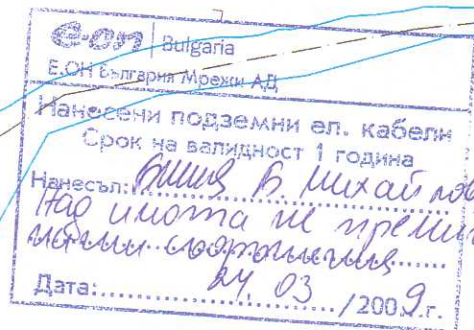 e·on | Bulgaria
Е.ОН България Мрежи АД
Нанесени подземни ел. кабели
Срок на валидност 1 година
Нанесъл: Б. Михайлов
Над имота не преминават
наши съоръжения
Дата: 24 03 / 2009 г.